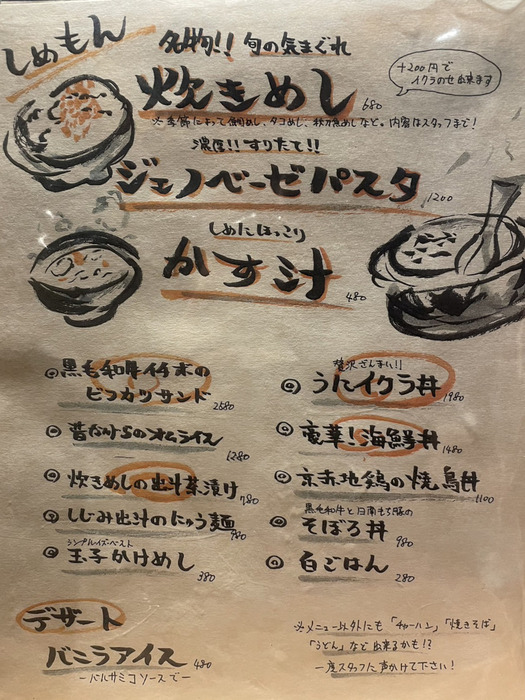 しめもん
名物!! 旬の気まぐれ
炊きめし 680
+200円で
イクラのせ出来ます
※季節によって鯛めし、タコめし、秋刀魚めしなど。内容はスタッフまで!
濃厚!! すりたて!!
ジェノベーゼパスタ 1200
しめにほっこり
かす汁 480
◎黒毛和牛イチボの
ビフカツサンド 2580
◎昔ながらのオムライス 1280
◎炊きめしの出汁茶漬け 780
◎しじみ出汁のにゅう麺 980
シンプルイズベスト
◎玉子かけめし 380
贅沢ざんまい!!
◎うにイクラ丼 1980
◎豪華!海鮮丼 1480
◎京赤地鶏の焼鳥丼 1100
黒毛和牛と日南もち豚の
◎そぼろ丼 980
◎白ごはん 280
デザート
バニラアイス 480
ーバルサミコソースでー
※メニュー以外にも「チャーハン」「焼きそば」
「うどん」など出来るかも!?
一度スタッフに声かけて下さい!